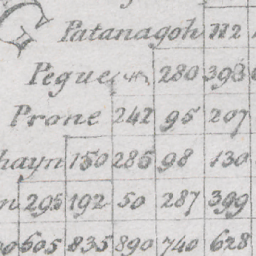 G
Patanagoh 112
Pegue 280 393
Prone 242 95 207
hayn 150 285 98 130
295 192 50 287 399
605 835 890 740 628